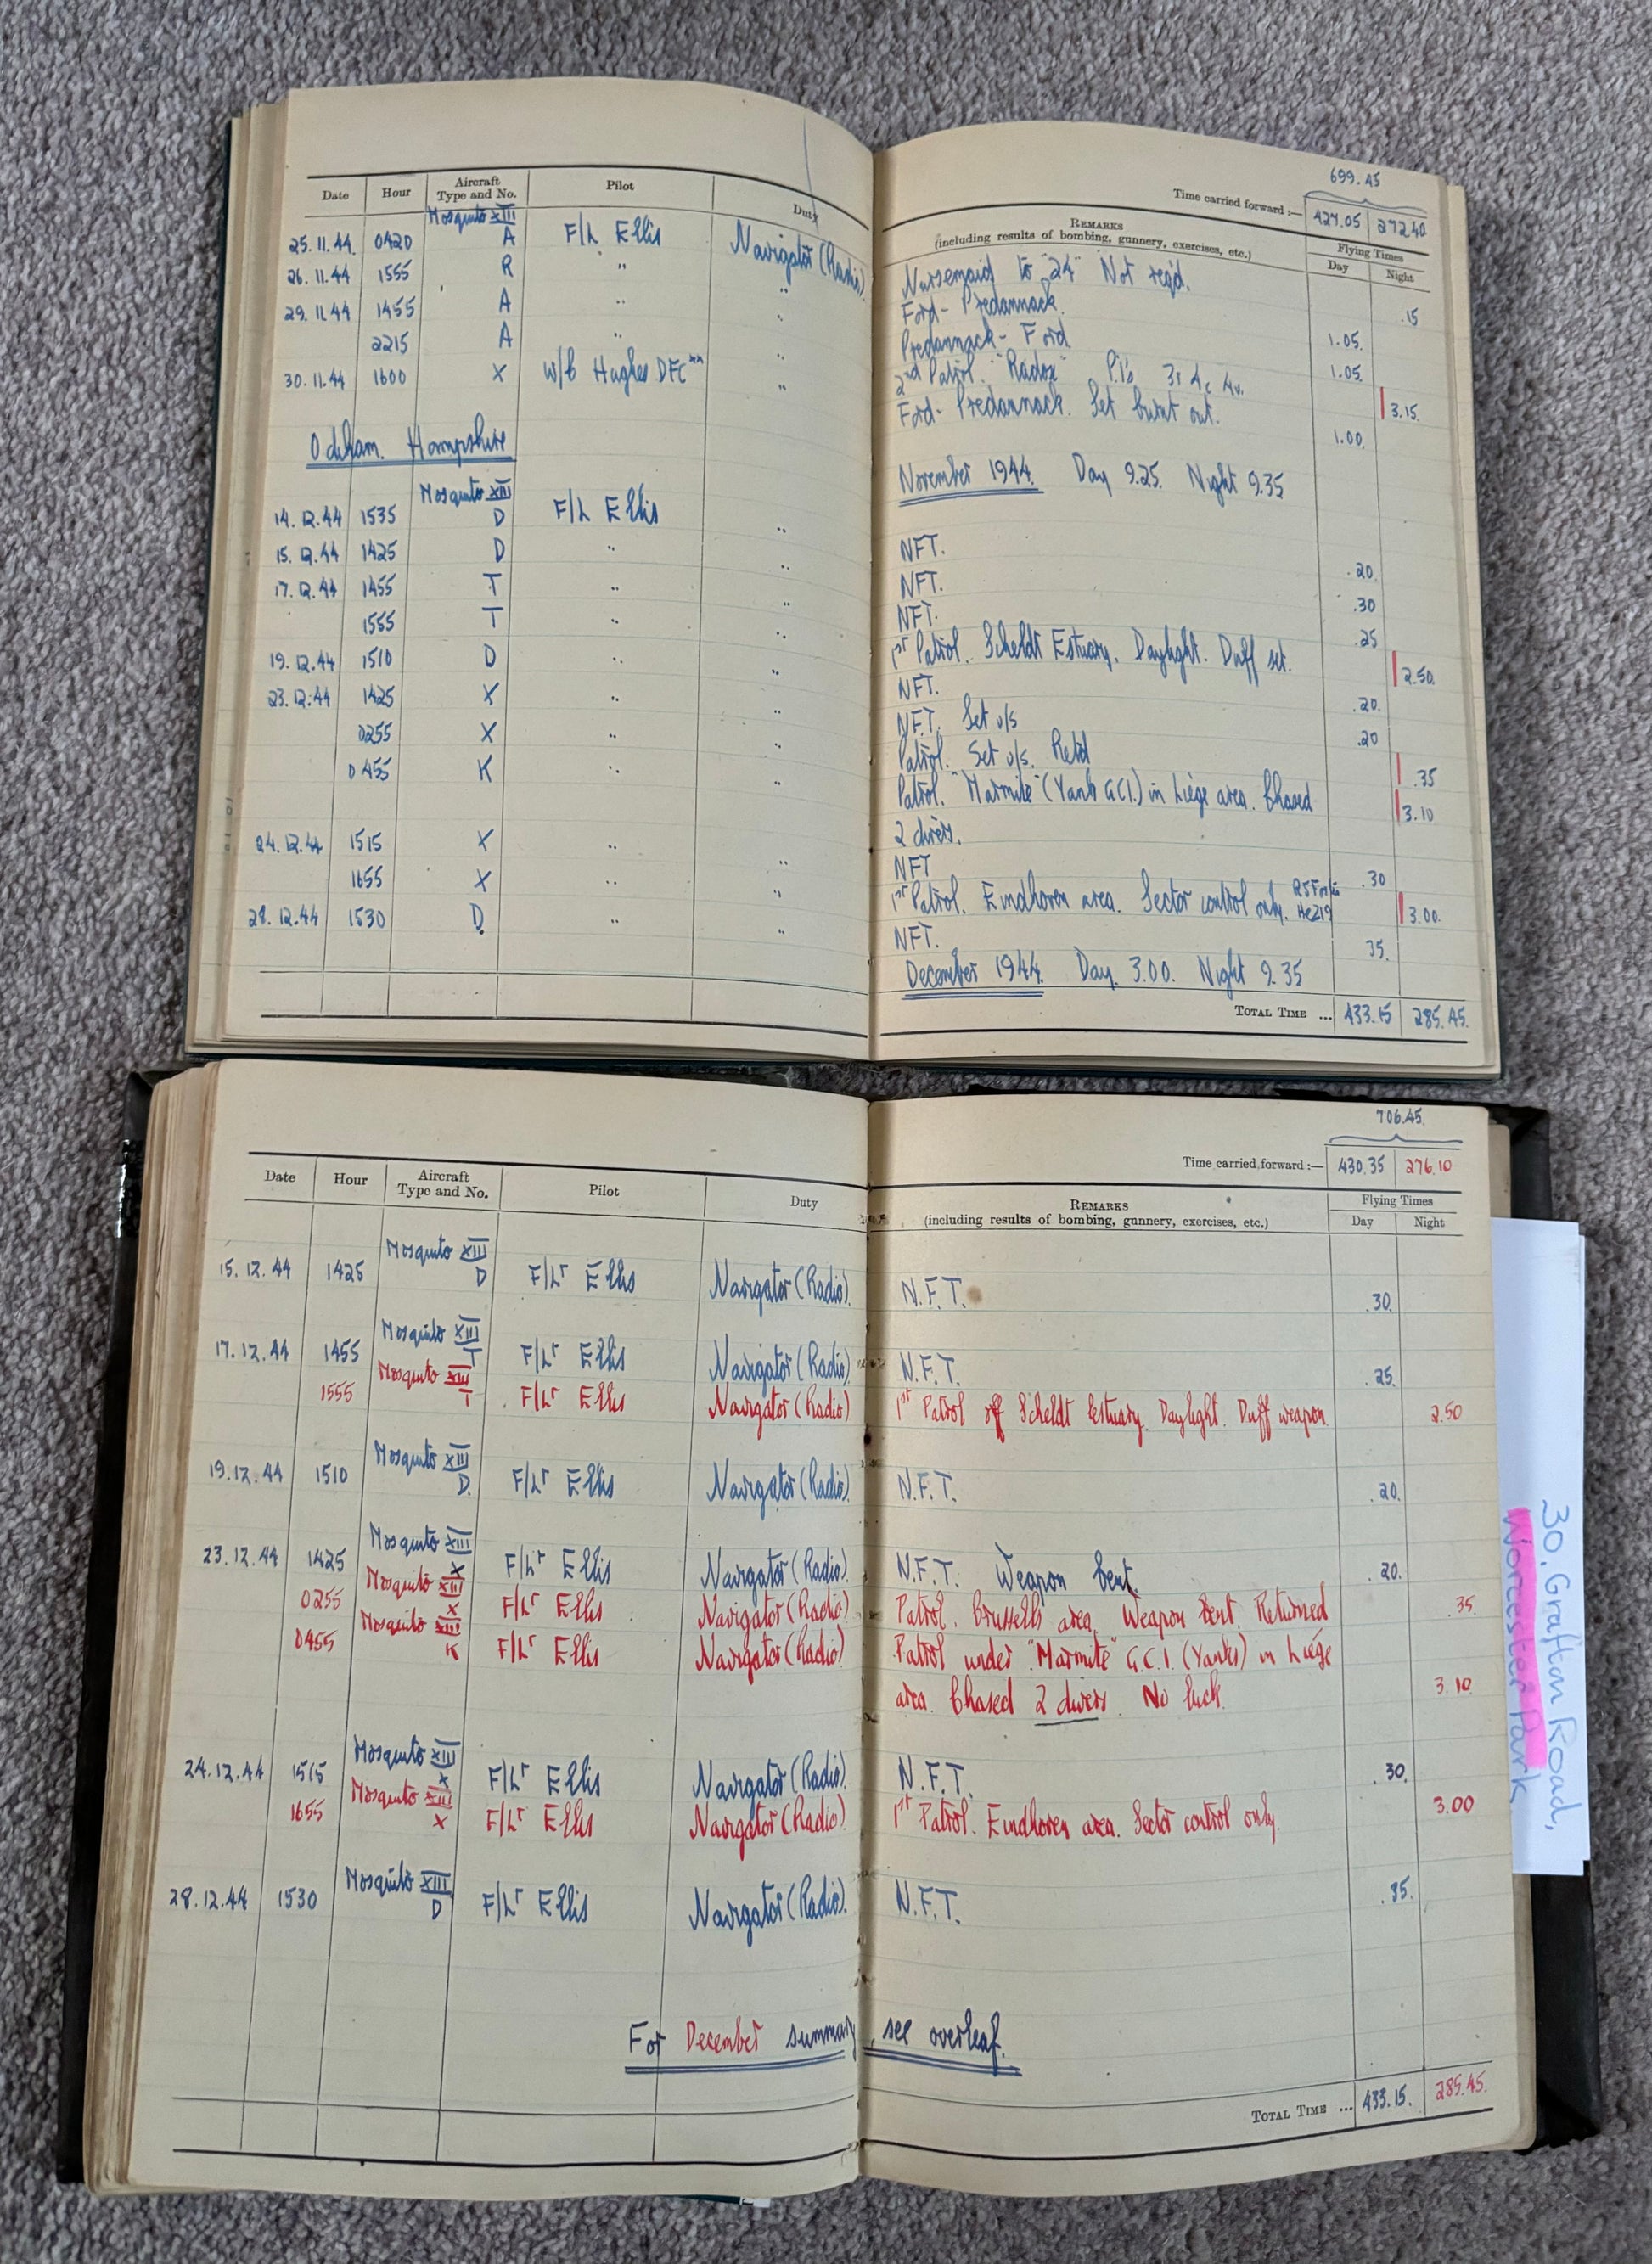 699.45
Date Hour Aircraft Type and No. Pilot Duty
Time carried forward :— 427.05 272.40
REMARKS (including results of bombing, gunnery, exercises, etc.) Flying Times Day Night
Mosquito XIII
25.11.44. 0420 A F/L Ellis Navigator (Radio) Nursemaid to "24" Not req'd. .15
26.11.44 1555 R " " Ford - Predannack. 1.05.
29.11.44 1455 A " " Predannack - Ford 1.05.
2215 A " " 2nd Patrol. "Radox" P.I's 3r 4c 4v. 3.15.
30.11.44 1600 X W/C Hughes DFC** " Ford - Predannack. Set burnt out. 1.00.
Odiham. Hampshire
November 1944. Day 9.25. Night 9.35
Mosquito XIII
14.12.44 1535 D F/L Ellis " NFT. .20.
15.12.44 1425 D " " NFT. .30
17.12.44 1455 T " " NFT. .25
1555 T " " 1st Patrol. Scheldt Estuary. Daylight. Duff set. 2.50.
19.12.44 1510 D " " NFT. .20.
23.12.44 1425 X " " NFT. Set u/s .20
0255 X " " Patrol. Set u/s. Retd .35
0455 K " " Patrol. "Marmite" (Yank GCI.) in Liège area. Chased 3.10
2 divers.
24.12.44 1515 X " " NFT .30
1655 X " " 1st Patrol. Eindhoven area. Sector control only. He219 3.00.
28.12.44 1530 D. " " NFT. 35.
December 1944. Day. 3.00. Night 9.35
TOTAL TIME ... 433.15 285.45.
706.45.
Date Hour Aircraft Type and No. Pilot Duty
Time carried forward :— 430.35 276.10
REMARKS (including results of bombing, gunnery, exercises, etc.) Flying Times Day Night
Mosquito XIII
15.12.44 1425 D F/Lr Ellis Navigator (Radio). N.F.T. .30.
Mosquito XIII
17.12.44 1455 T F/Lr Ellis Navigator (Radio) N.F.T. .25.
Mosquito XIII
1555 T F/Lr Ellis Navigator (Radio) 1st Patrol off Scheldt Estuary. Daylight. Duff weapon. 2.50
Mosquito XIII
19.12.44 1510 D. F/Lr Ellis Navigator (Radio) N.F.T. .20.
Mosquito XIII
23.12.44 1425 X F/Lr Ellis Navigator (Radio) N.F.T. Weapon bent. .20.
Mosquito XIII
0255 X F/Lr Ellis Navigator (Radio) Patrol. Brussells area. Weapon bent. Returned .35.
Mosquito XIII
0455 K F/Lr Ellis Navigator (Radio) Patrol under "Marmite" G.C.I. (Yanks) in Liège
area. Chased 2 divers. No luck. 3.10
Mosquito XIII
24.12.44 1515 X F/Lr Ellis Navigator (Radio). N.F.T. .30.
Mosquito XIII
1655 X F/Lr Ellis Navigator (Radio). 1st Patrol. Eindhoven area. Sector control only. 3.00
Mosquito XIII
28.12.44 1530 D F/Lr Ellis Navigator (Radio). N.F.T. .35.
For December summary, see overleaf.
TOTAL TIME ... 433.15. 285.45.
30. Grafton Road,
Worcester Park